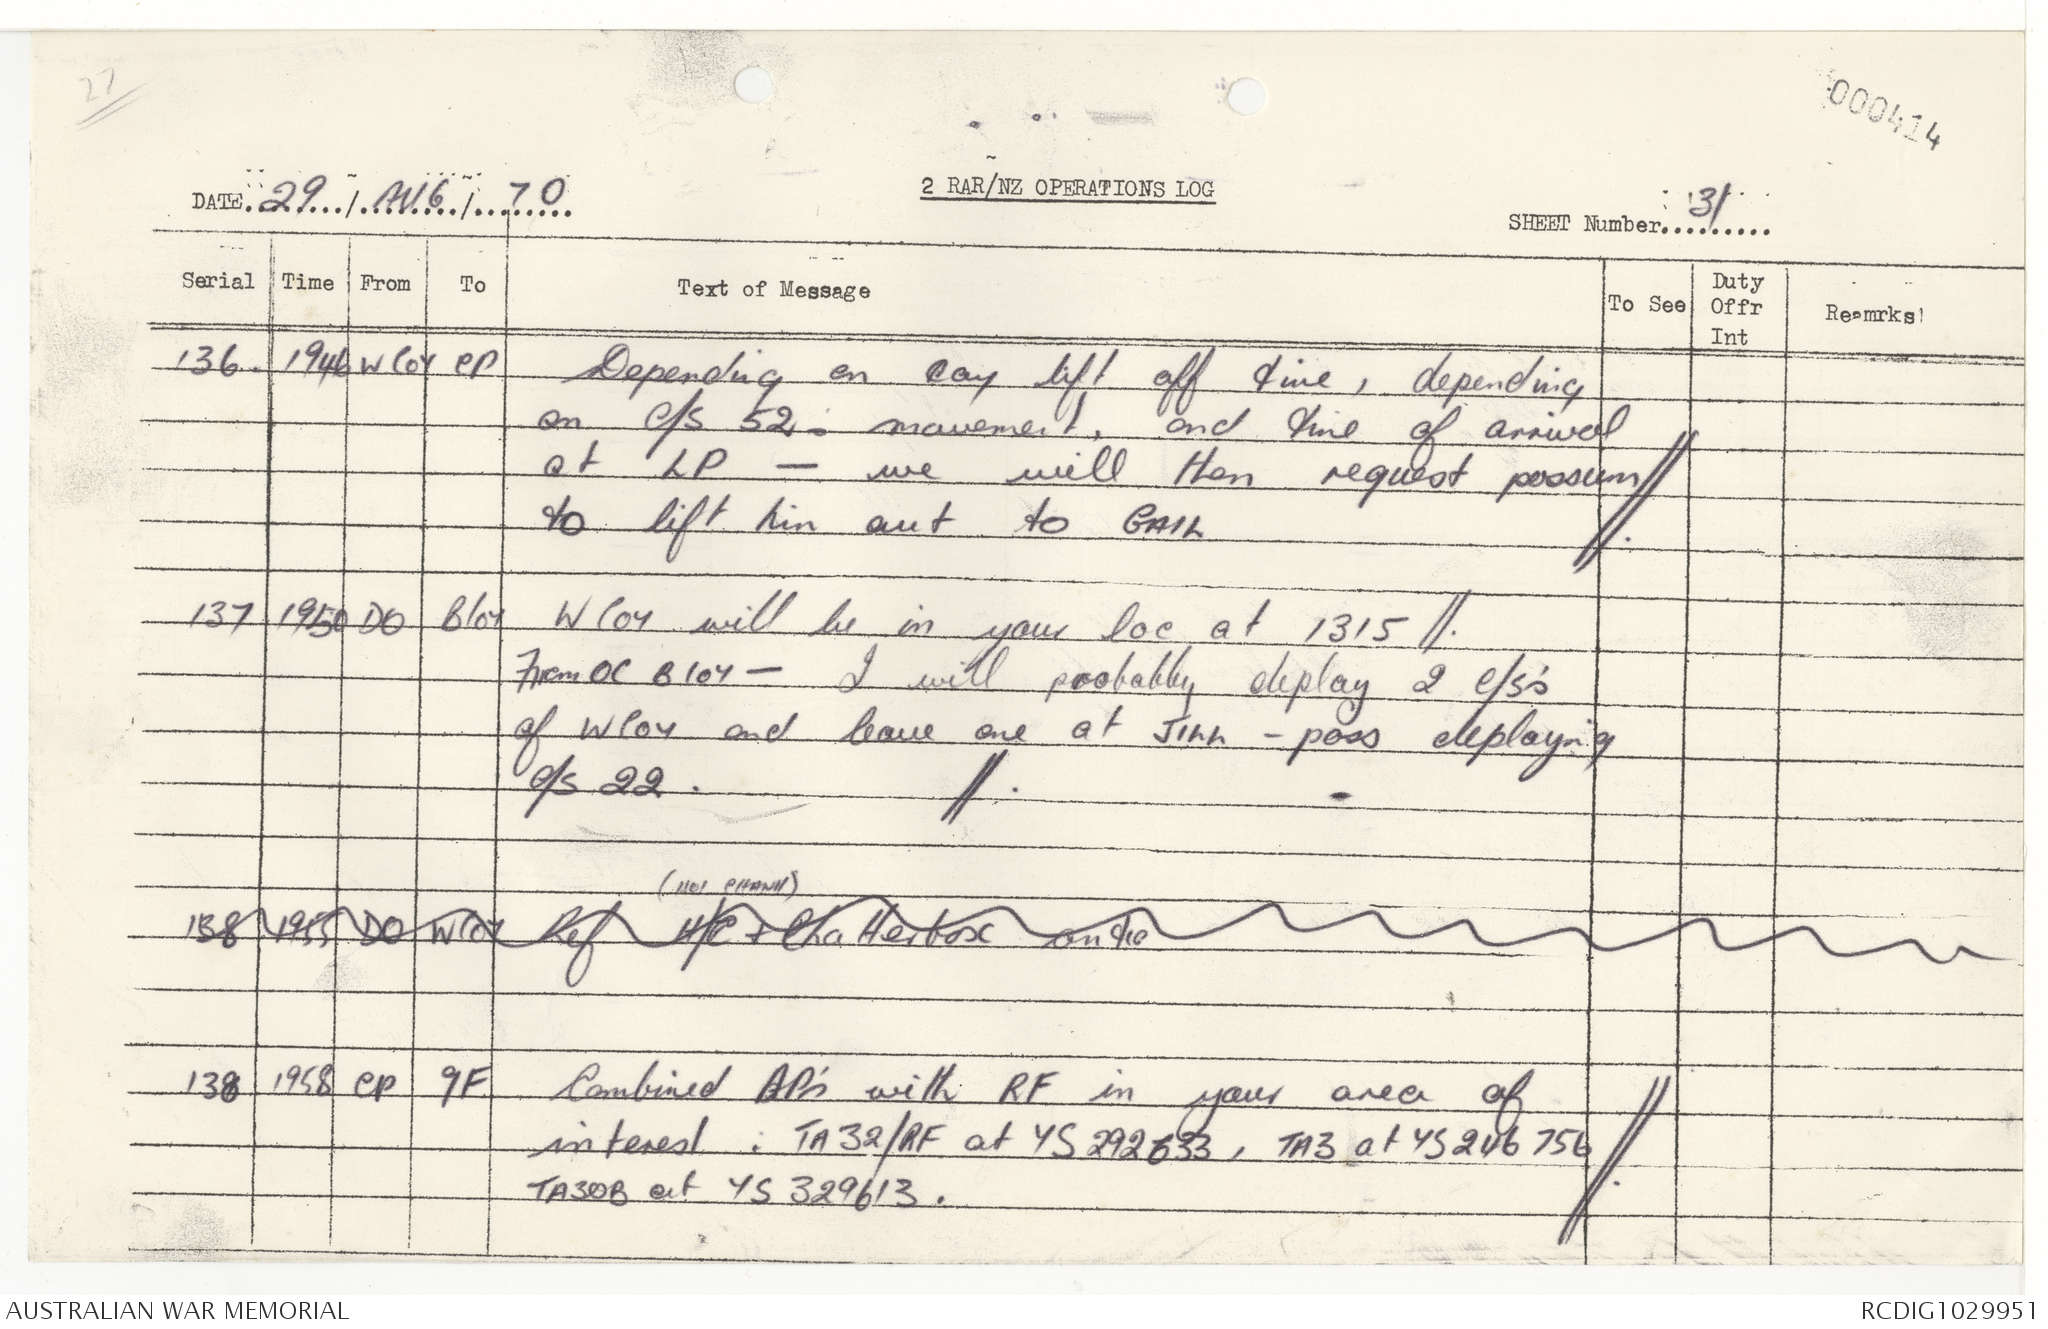 27
000414
DATE 29/AUG/70
2 RAR/NZ OPERATIONS LOG
SHEET Number 31
Serial Time From To Text of Message To See Duty Offr Int Remrks
136. 1946 W Coy CP Depending on Coy lift off time, depending
on C/S 52 movement, and time of arrival
at LP — we will then request possum
to lift him out to GAIL //.
137 1950 DO B Coy W Coy will be in your loc at 1315 //.
From OC B Coy — I will probably deploy 2 C/S's
of W Coy and leave one at JILL - poss deploying
C/S 22. //.
138 1955 DO W Coy Ref H/C + Chatterbox on the
138 1958 CP 9F Combined AP's with RF in your area of
interest : TA32/RF at YS 292633, TA3 at YS 246 756
TA30B at YS 329613. //.
AUSTRALIAN WAR MEMORIAL
RCDIG1029951